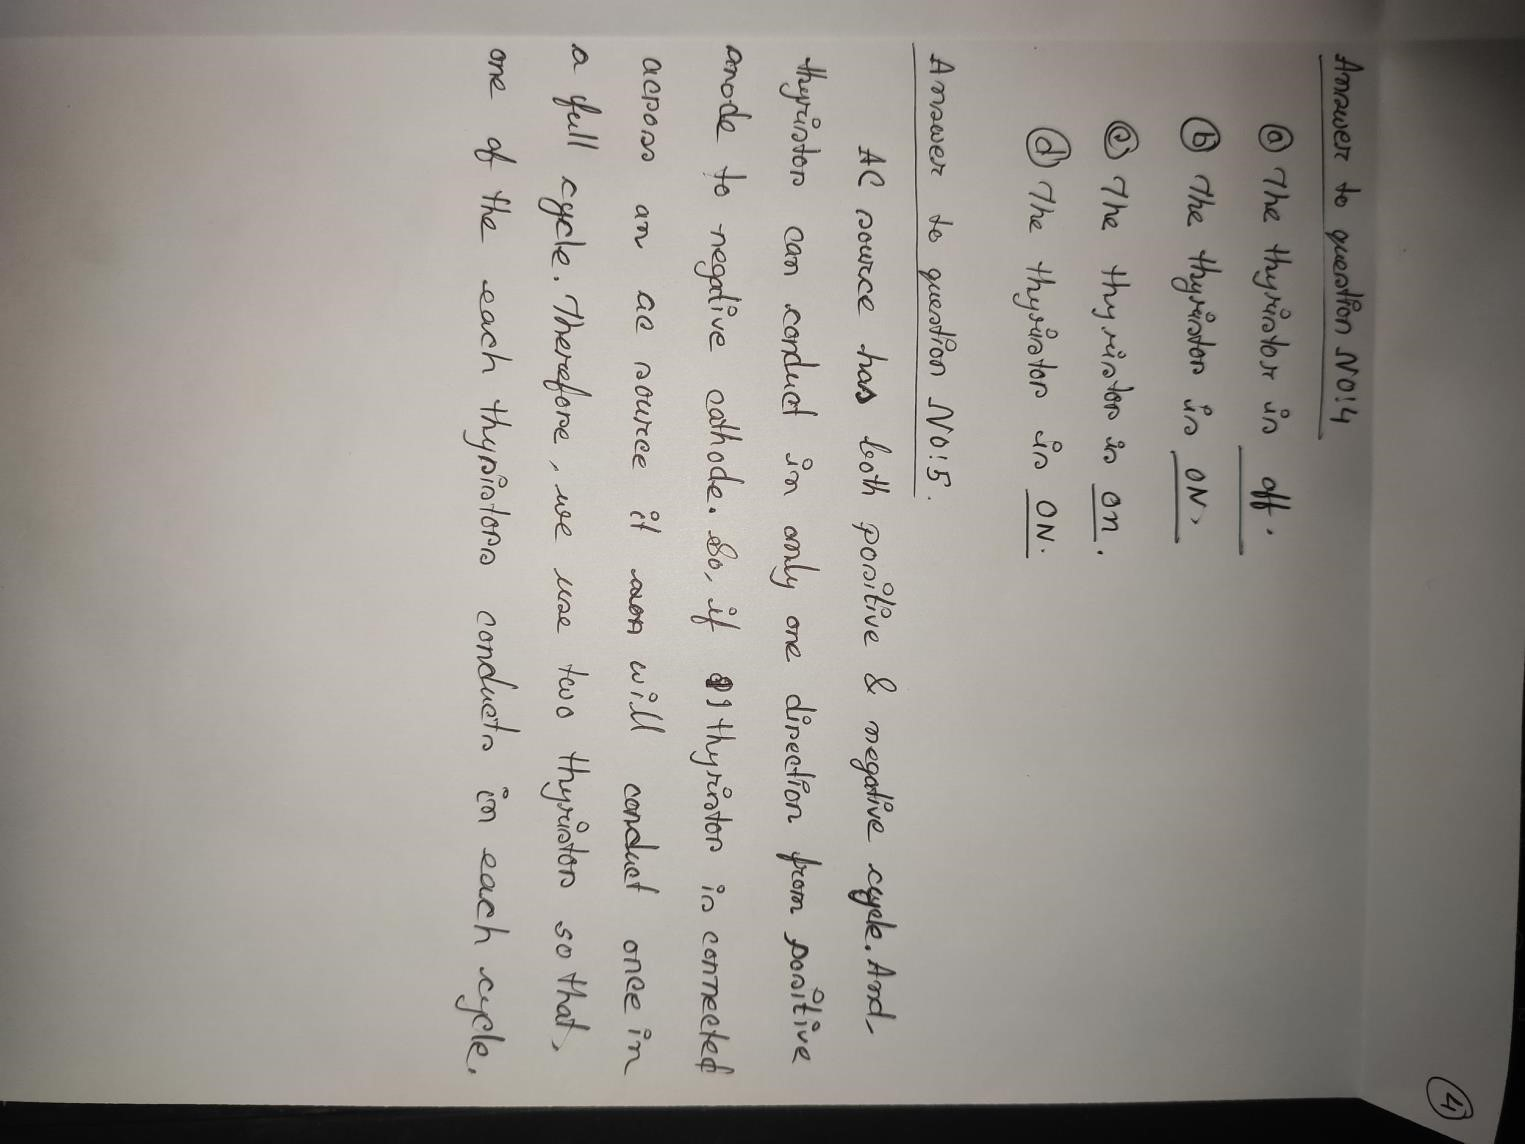 4
Answer to question NO:4
(a) The thyristor is off.
(b) The thyristor is ON.
(c) The thyristor is on.
(d) The thyristor is ON.
Answer to question NO:5.
AC source has both positive & negative cycle. And-
thyristor can conduct in only one direction from positive
anode to negative cathode. So, if thyristor is connected
across an ac source it will conduct once in
a full cycle. Therefore, we use two thyristor so that,
one of the each thyristors conducts in each cycle.